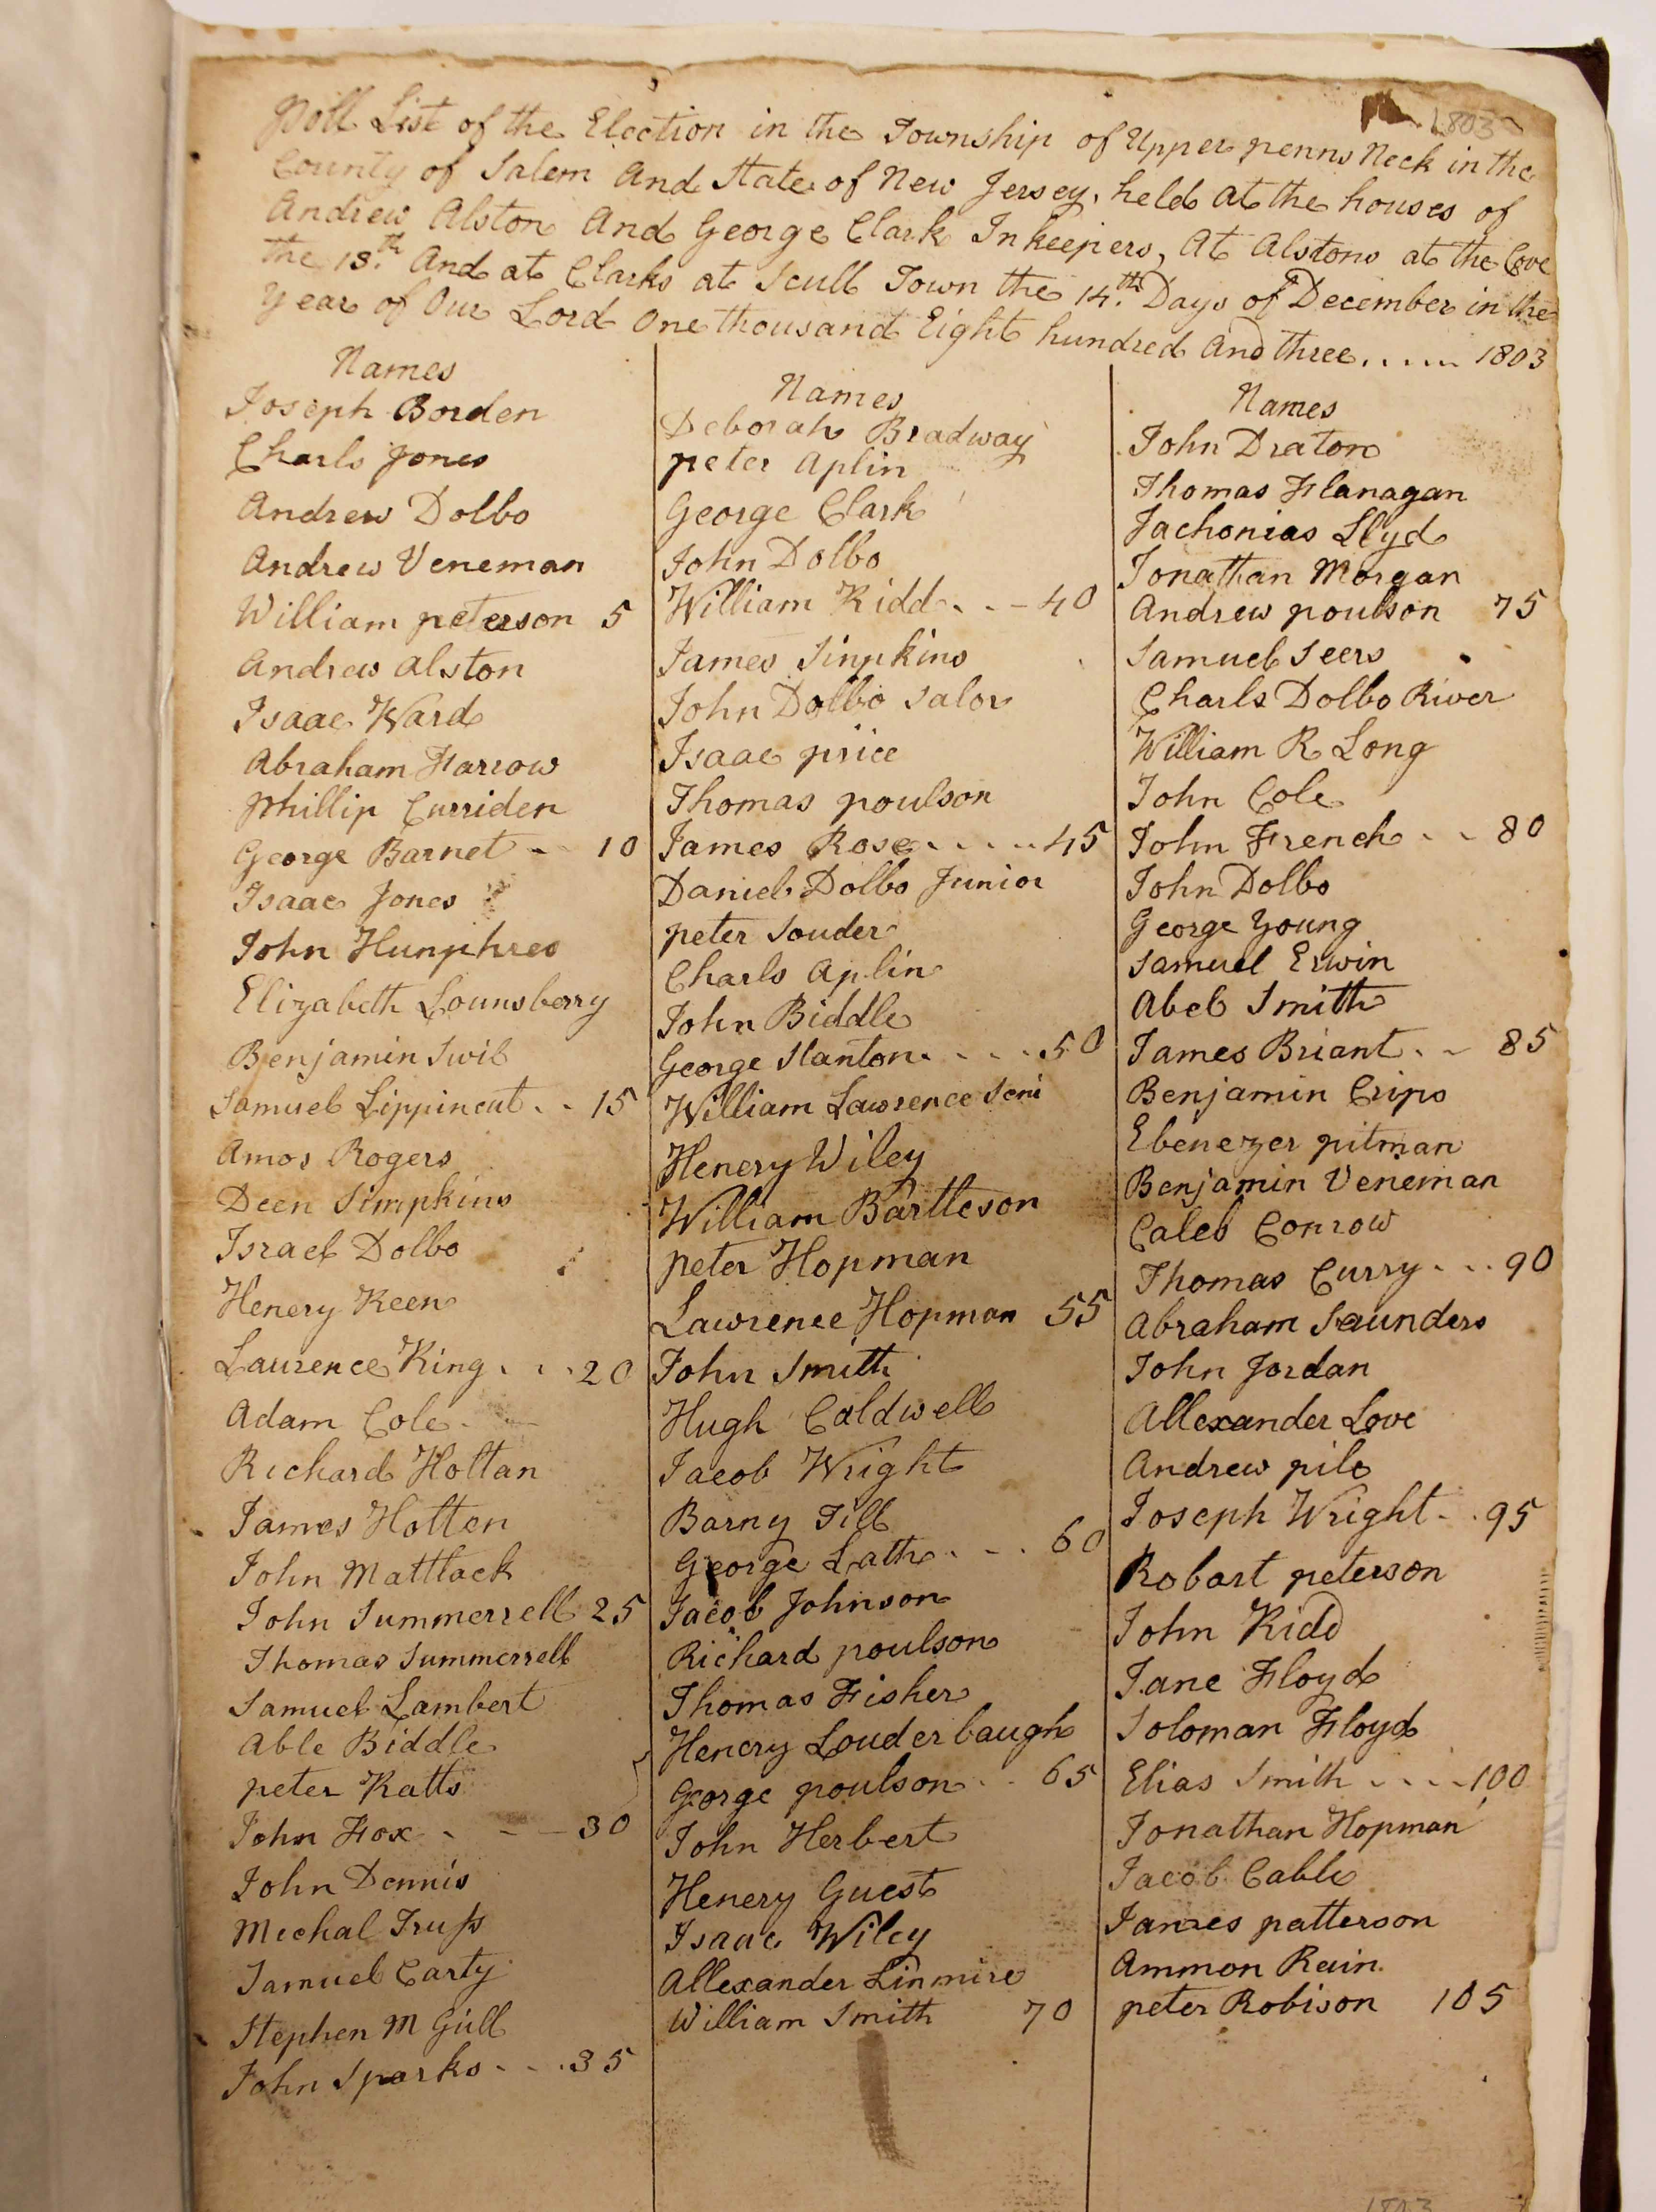 1803
Poll List of the Election in the Township of Upper penns Neck in the
County of Salem And State of New Jersey, held at the houses of
Andrew Alston And George Clark Inkeepers, At Alstons at the Cove
the 13.th And at Clarks at Scull Town the 14.th Days of December in the
Year of Our Lord One thousand Eight hundred And three..... 1803
Names
Joseph Borden
Charls Jones
Andrew Dolbo
Andrew Veneman
William peterson 5
Andrew Alston
Isaac Ward
Abraham Farrow
Phillip Curriden
George Barnet - - 10
Isaac Jones
John Humphres
Elizabeth Lounsberry
Benjamin Swil
Samuel Lippincut . . 15
Amos Rogers
Deen Simpkins
Israel Dolbo
Henery Keen
Laurence King . . . 20
Adam Cole
Richard Hottan
James Hotten
John Mattlack
John Summerrell 25
Thomas Summerrell
Samuel Lambert
Able Biddle
peter Katts
John Fox - - - 30
John Dennis
Mechal Truss
Samuel Carty
Stephen M Gill
John Sparks - - . 35
Names
Deborah Bradway
peter Aplin
George Clark
John Dolbo
William Kidd . . - 40
James Simpkins
John Dolbo Salor
Isaac price
Thomas poulson
James Rose . . . . . 45
Daniel Dolbo Junior
peter Souder
Charls Aplin
John Biddle
George Stanton . . . . 50
William Lawrence Seni
Henery Wiley
William Bartleson
peter Hopman
Lawrence Hopman 55
John Smith
Hugh Caldwell
Jacob Wright
Barny Till
George Lath . - . 60
Jacob Johnson
Richard poulson
Thomas Fisher
Henery Louderbaugh
George poulson . . 65
John Herbert
Henery Guest
Isaac Wiley
Allexander Linmire
William Smith 70
Names
John Draton
Thomas Flanagan
Jachonias Llyd
Jonathan Morgan
Andrew poulson 75
Samuel Seers
Charls Dolbo River
William R Long
John Cole
John French - - 80
John Dolbo
George Young
Samuel Erwin
Abel Smith
James Briant . - 85
Benjamin Crips
Ebenezer pitman
Benjamin Veneman
Caleb Conrow
Thomas Curry . . . 90
Abraham Saunders
John Jordan
Allexander Love
Andrew pile
Joseph Wright - . 95
Robart peterson
John Kidd
Jane Floyd
Soloman Floyd
Elias Smith . . . - 100
Jonathan Hopman
Jacob Cable
James patterson
Ammon Rain
peter Robison 105
1803